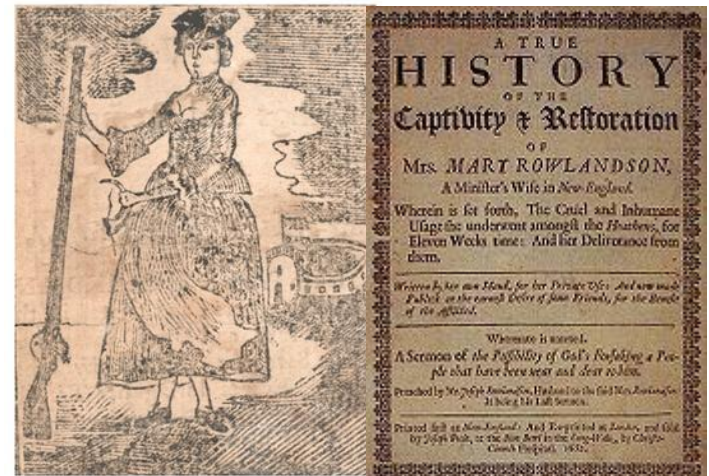 A TRUE
HISTORY
OF THE
Captivity & Restoration
OF
MRS. MARY ROWLANDSON,
A Minister's Wife in New-England.
Wherein is set forth, The Cruel and Inhumane
Usage she underwent amongst the Heathens, for
Eleven Weeks time: And her Deliverance from
them.
Written by her own Hand, for her Private Use: And now made
Publick at the earnest Desire of some Friends, for the Benefit
of the Afflicted.
Whereunto is annexed,
A Sermon of the Possibility of God's Forsaking a Peo-
ple that have been near and dear to him.
Preached by Mr. Joseph Rowlandson, Husband to the said Mrs. Rowlandson:
It being his Last Sermon.
Printed first at New-England: And Re-printed at London, and sold
by Joseph Poole, at the Blue Bowl in the Long-Walk, by Christs-
Church Hospital. 1682.